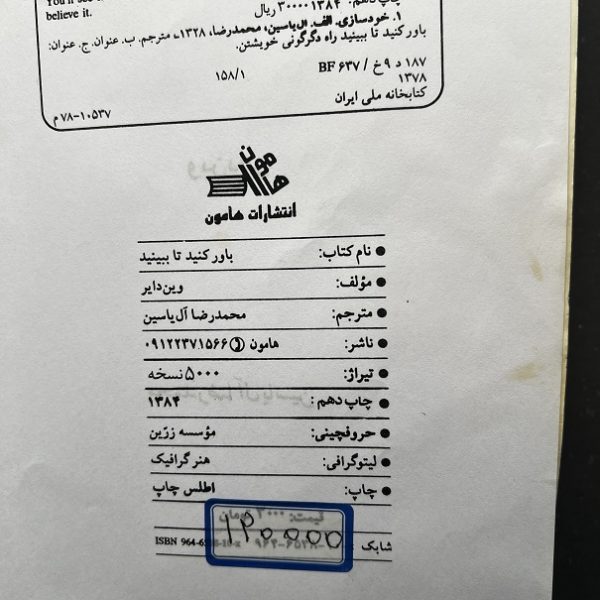 believe it.
چاپ دهم: ۱۳۸۴ ۳۰۰۰۰ ریال
۱. خودسازی. الف. آل‌یاسین، محمدرضا، ۱۳۲۸-، مترجم. ب. عنوان. ج. عنوان:
باور کنید تا ببینید راه دگرگونی خویشتن.
۱۸۷ د ۹ خ / BF ۶۳۷
۱۵۸/۱
۱۳۷۸
کتابخانه ملی ایران
۷۸-۱۰۵۳۷ م
هامون
انتشارات هامون
● نام کتاب: باور کنید تا ببینید
● مؤلف: وین‌دایر
● مترجم: محمدرضا آل‌یاسین
● ناشر: هامون ۰۹۱۲۲۳۷۱۵۶۶
● تیراژ: ۵۰۰۰ نسخه
● چاپ دهم: ۱۳۸۴
● حروفچینی: مؤسسه زرّین
● لیتوگرافی: هنر گرافیک
● چاپ: اطلس چاپ
۱۲۰۰۰۰
شابک ISBN 964-